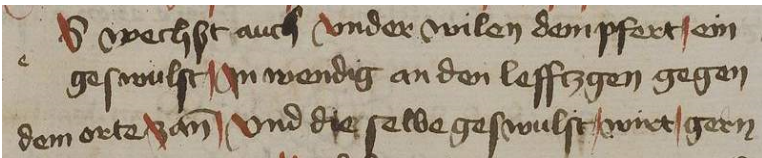 S wechst auch vnder wilen dem pfert ein
e
geswulst Jn wendig an den lefftzgen gegen
dem orte zan Vnd die selbe geswulst wirt gern